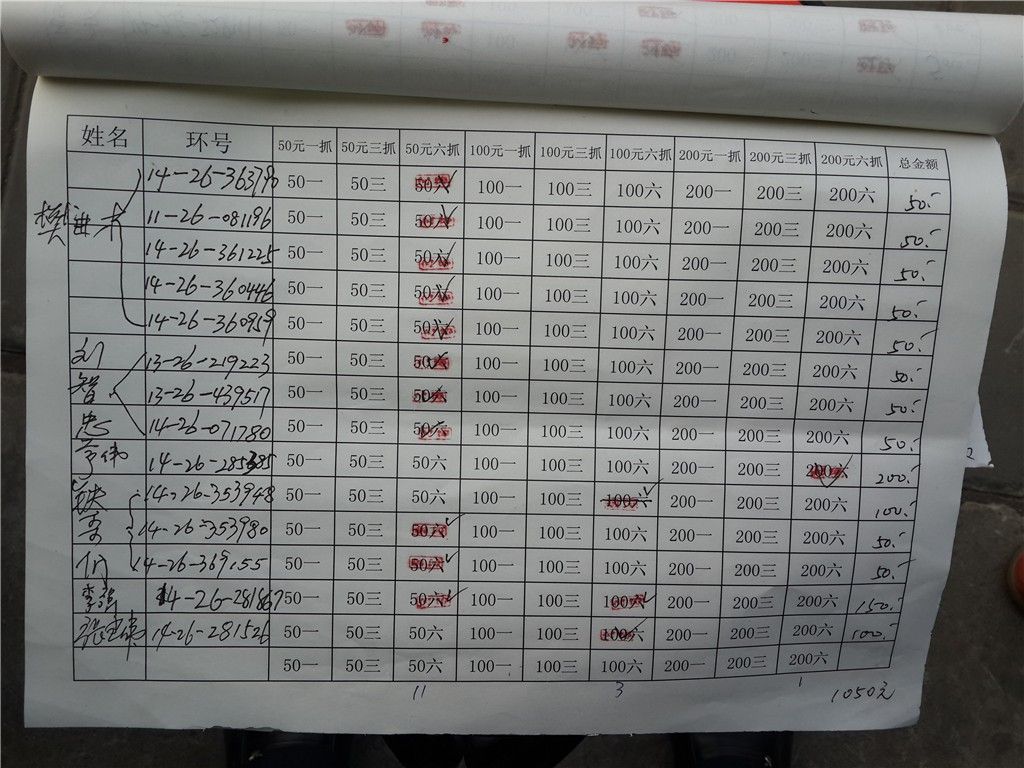 姓名 环号 50元一抓 50元三抓 50元六抓 100元一抓 100元三抓 100元六抓 200元一抓 200元三抓 200元六抓 总金额
14-26-363790 50一 50三 50六 100一 100三 100六 200一 200三 200六 50.-
11-26-081196 50一 50三 50六 100一 100三 100六 200一 200三 200六 50.-
14-26-361225 50一 50三 50六 100一 100三 100六 200一 200三 200六 50.-
14-26-360446 50一 50三 50六 100一 100三 100六 200一 200三 200六 50.-
14-26-360959 50一 50三 50六 100一 100三 100六 200一 200三 200六 50.-
刘 13-26-219223 50一 50三 50六 100一 100三 100六 200一 200三 200六 50.-
智 13-26-439517 50一 50三 50六 100一 100三 100六 200一 200三 200六 50.-
忠 14-26-071780 50一 50三 50六 100一 100三 100六 200一 200三 200六 50.-
14-26-285385 50一 50三 50六 100一 100三 100六 200一 200三 200六 200.-
14-26-353948 50一 50三 50六 100一 100三 100六 200一 200三 200六 100.-
14-26-353980 50一 50三 50六 100一 100三 100六 200一 200三 200六 50.-
14-26-369155 50一 50三 50六 100一 100三 100六 200一 200三 200六 50.-
14-26-281867 50一 50三 50六 100一 100三 100六 200一 200三 200六 150.-
14-26-281526 50一 50三 50六 100一 100三 100六 200一 200三 200六 100.-
50一 50三 50六 100一 100三 100六 200一 200三 200六
11 3 1 1050元